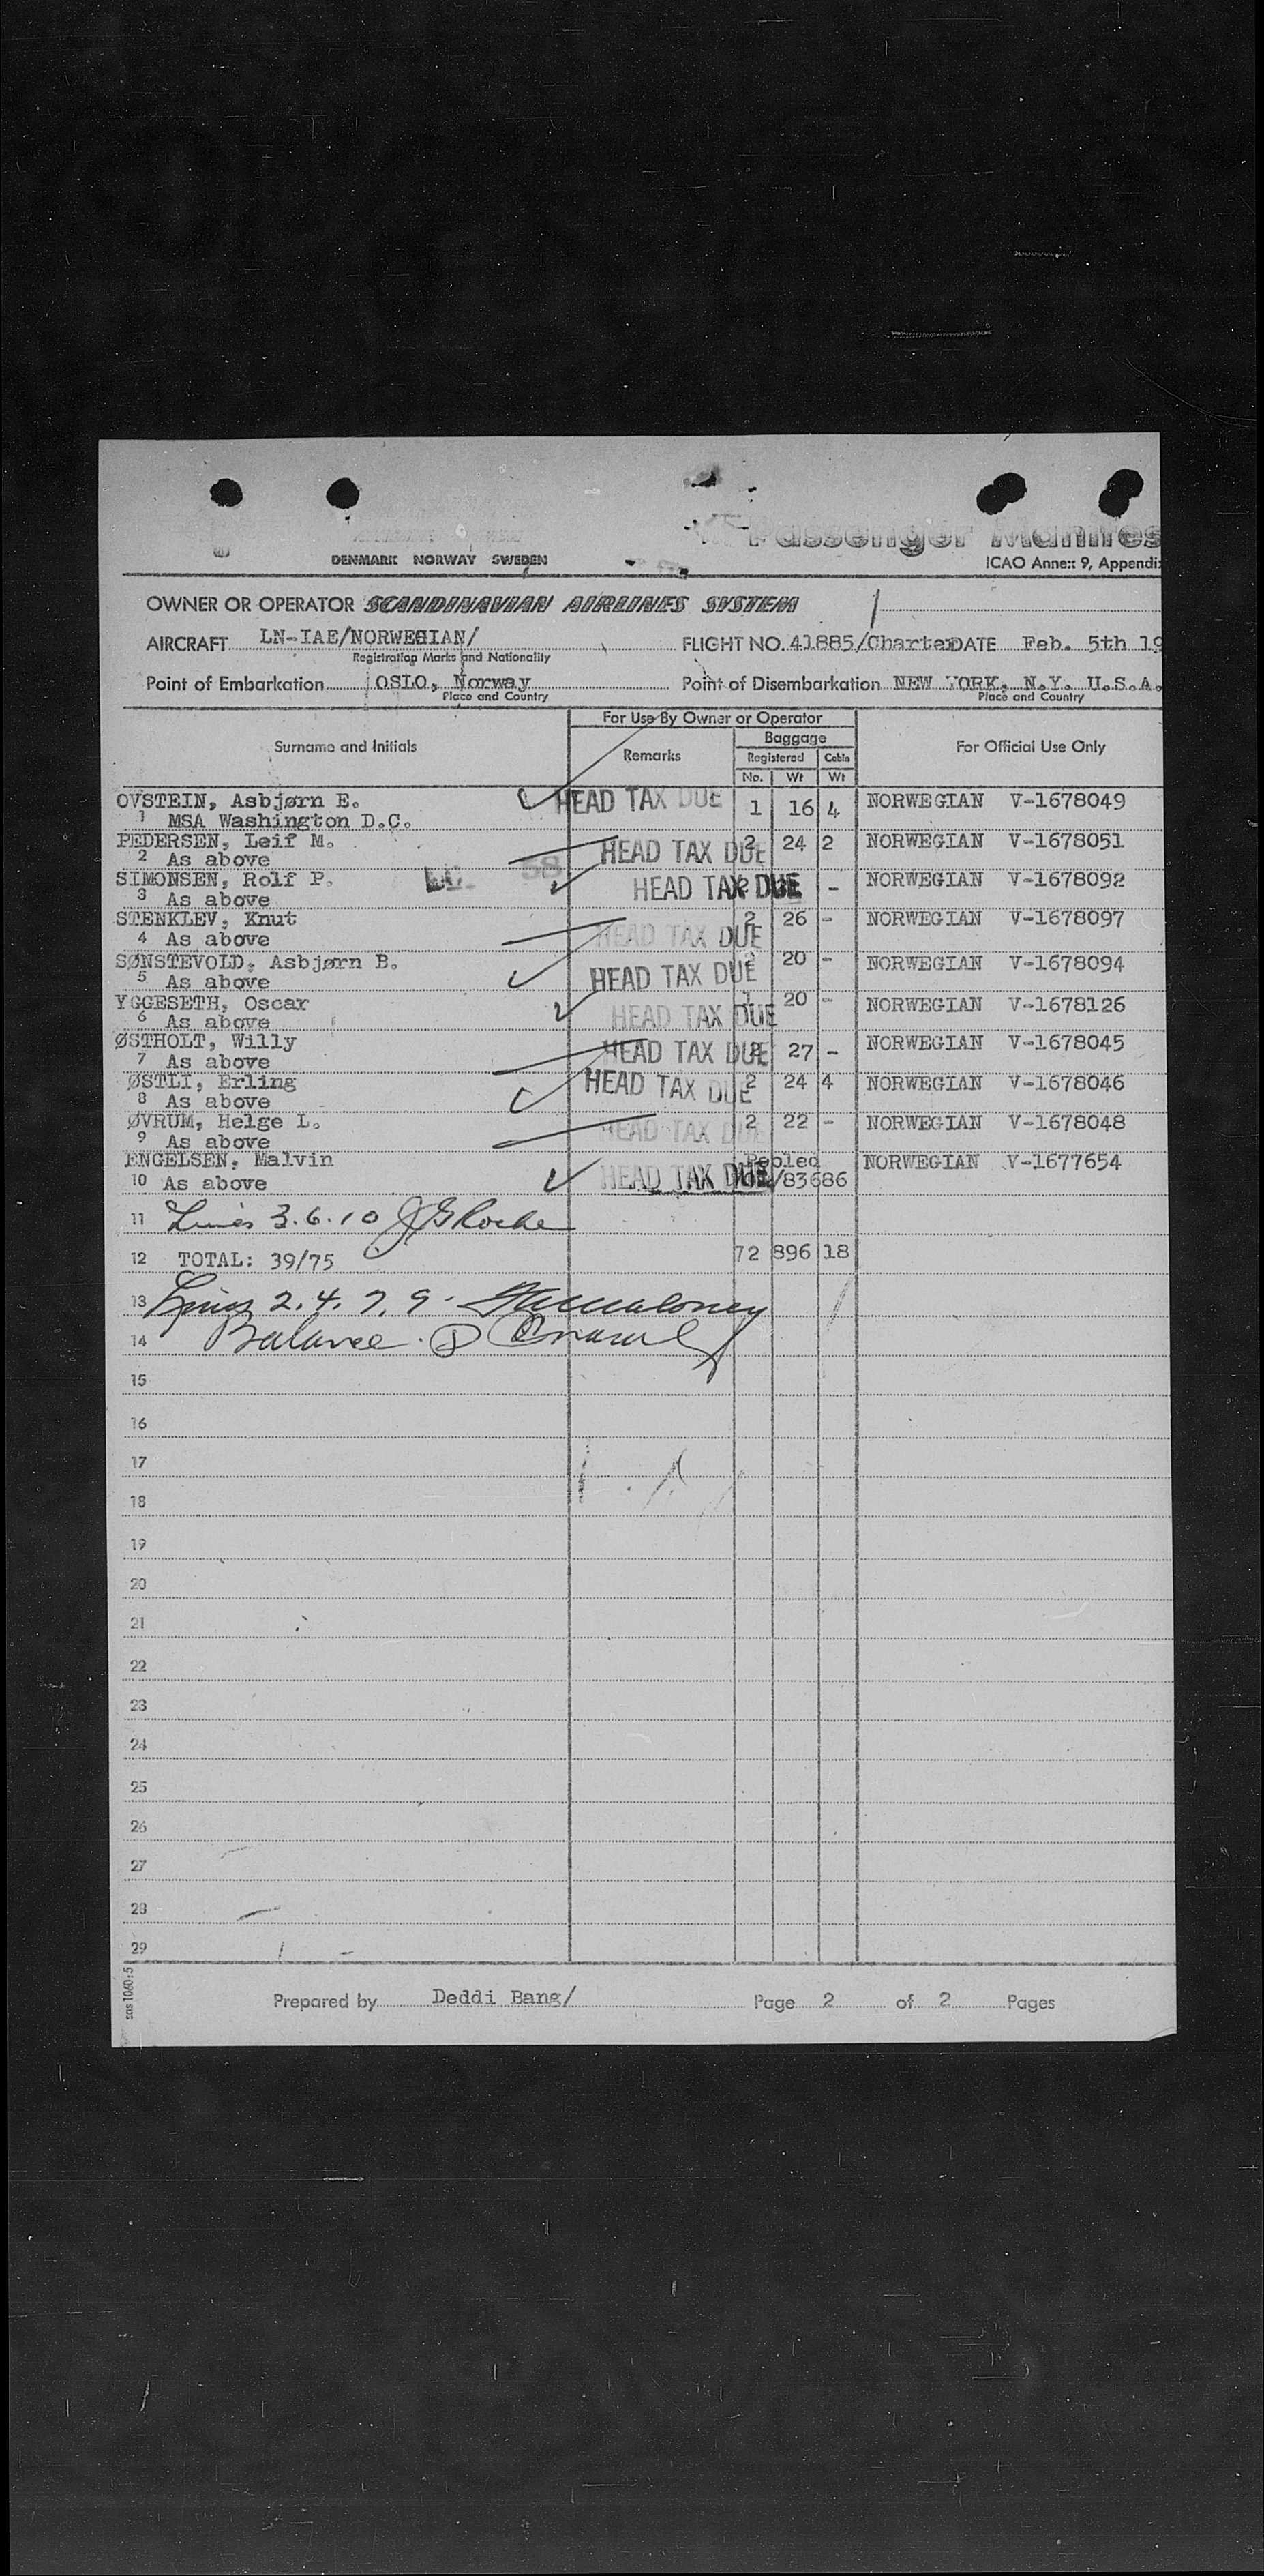 Passenger Manifes
DENMARK NORWAY SWEDEN
ICAO Annex 9, Appendi
OWNER OR OPERATOR SCANDINAVIAN AIRLINES SYSTEM
AIRCRAFT LN-IAE/NORWEGIAN/ FLIGHT NO. 41885/Charter DATE Feb. 5th 19
Registration Marks and Nationality
Point of Embarkation OSLO, Norway Point of Disembarkation NEW YORK, N.Y. U.S.A.
Place and Country Place and Country
For Use By Owner or Operator
Surname and Initials Remarks Baggage For Official Use Only
Registered Cabin
No. Wt Wt
OVSTEIN, Asbjørn E. HEAD TAX DUE 1 16 4 NORWEGIAN V-1678049
1 MSA Washington D.C.
PEDERSEN, Leif M. HEAD TAX DUE 2 24 2 NORWEGIAN V-1678051
2 As above
SIMONSEN, Rolf P. HEAD TAX DUE - NORWEGIAN V-1678092
3 As above
STENKLEV, Knut HEAD TAX DUE 2 26 - NORWEGIAN V-1678097
4 As above
SØNSTEVOLD, Asbjørn B. HEAD TAX DUE 20 - NORWEGIAN V-1678094
5 As above
YGGESETH, Oscar HEAD TAX DUE 1 20 - NORWEGIAN V-1678126
6 As above
ØSTHOLT, Willy HEAD TAX DUE 2 27 - NORWEGIAN V-1678045
7 As above
ØSTLI, Erling HEAD TAX DUE 2 24 4 NORWEGIAN V-1678046
8 As above
ØVRUM, Helge L. HEAD TAX DUE 2 22 - NORWEGIAN V-1678048
9 As above
ENGELSEN, Malvin Pooled NORWEGIAN V-1677654
10 As above HEAD TAX DUE /83686
11 Lines 3.6.10 J G Roche
12 TOTAL: 39/75 72 896 18
13 Lines 2.4.7.9. Maloney
14 Balance
15
16
17
18
19
20
21
22
23
24
25
26
27
28
29
sas 1060:5
Prepared by Deddi Bang/ Page 2 of 2 Pages